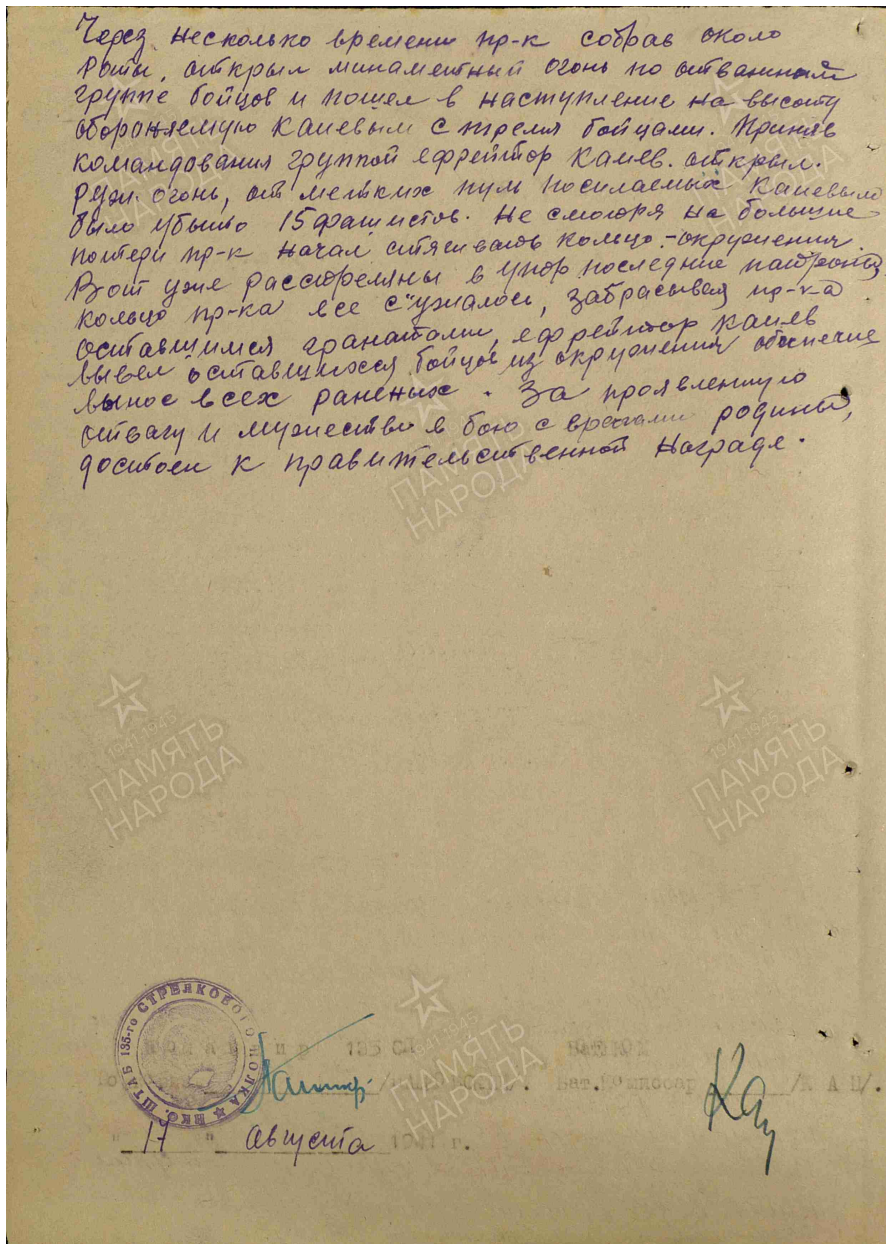 Через несколько времени пр-к собрав около
роты, открыл минаметный огонь по отважной
группе бойцов и пошел в наступление на высоту
обороняемую Каиевым с тремя бойцами. Приняв
командования группой ефрейтор Каиев. открыл.
руж. огонь, от метких пуль посилаемых Каиевым
было убыто 15 фашистов. Не смотря на большие
потери пр-к начал стягивать кольцо-окружения.
Вот уже расстреляны в упор последние патроны,
кольцо пр-ка все с'ужалось, забрасывая пр-ка
оставшимся гранатами, ефрейтор Каиев
вывел оставшихся бойцов из окружения обеспечив
вынос всех раненых. За проявленную
отвагу и мужество в бою с врагами родины,
достоен к правительственной награде.
ПАМЯТЬ
НАРОДА
1941 1945
ПАМЯТЬ
НАРОДА
1941 1945
ПАМЯТЬ
НАРОДА
ВКО. ШТАБ 135-го СТРЕЛКОВОГО ПОЛКА
135 СП ВОЕНКОМ
Бат.Комиссар /К А Ц/.
" 17 " августа 1941 г.
1941 1945
ПАМЯТЬ
НАРОДА